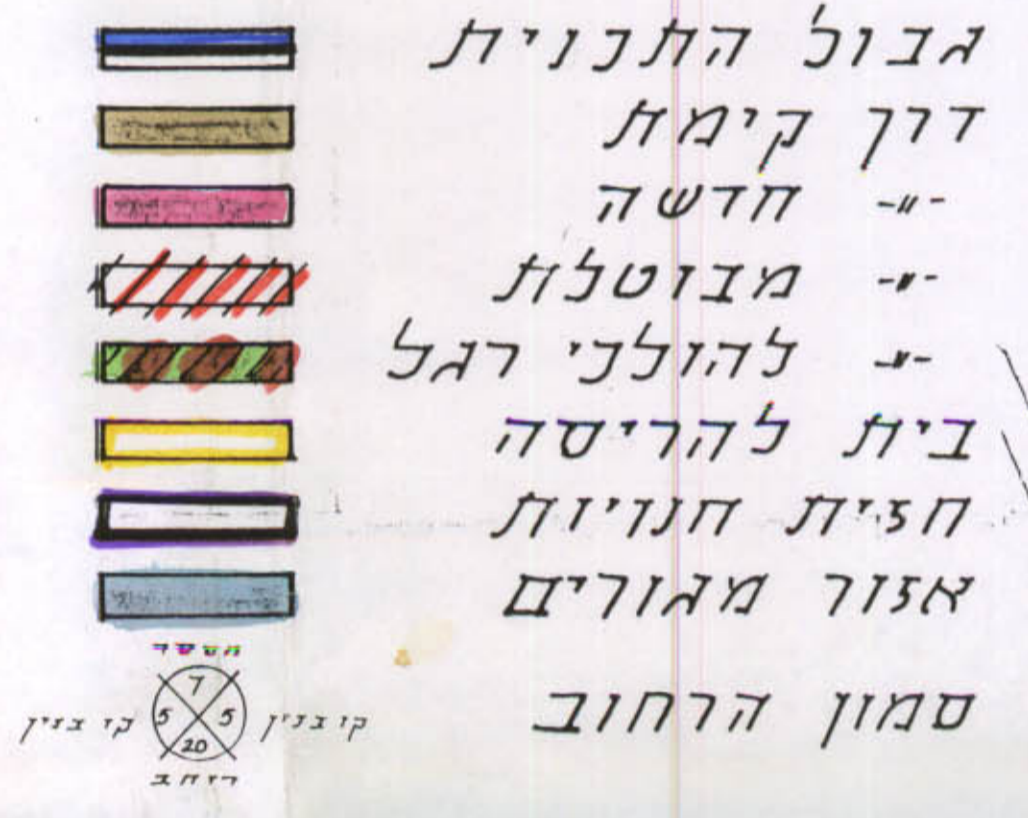 גבול התכנית
דרך קימת
-"- חדשה
-"- מבוטלת
-"- להולכי רגל
בית להריסה
חזית חנויות
אזור מגורים
סמון הרחוב
מספר
7
קו בנין 5 5 קו בנין
20
רוחב